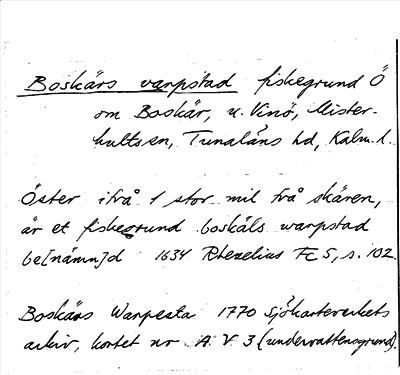 Boskärs varpstad fiskegrund Ö
om Boskär, u. Vinö, Mister-
hults sn, Tunaläns hd, Kalm. l.
Öster ifrå 1 stor mil frå skären,
är et fiskegrund boskäls warpstad
be[nämn]d 1634 Rhezelius Fc 5, s. 102.
Boskärs Warpesta 1770 Sjökarteverkets
arkiv, kortet nr A V 3 (undervattensgrund).